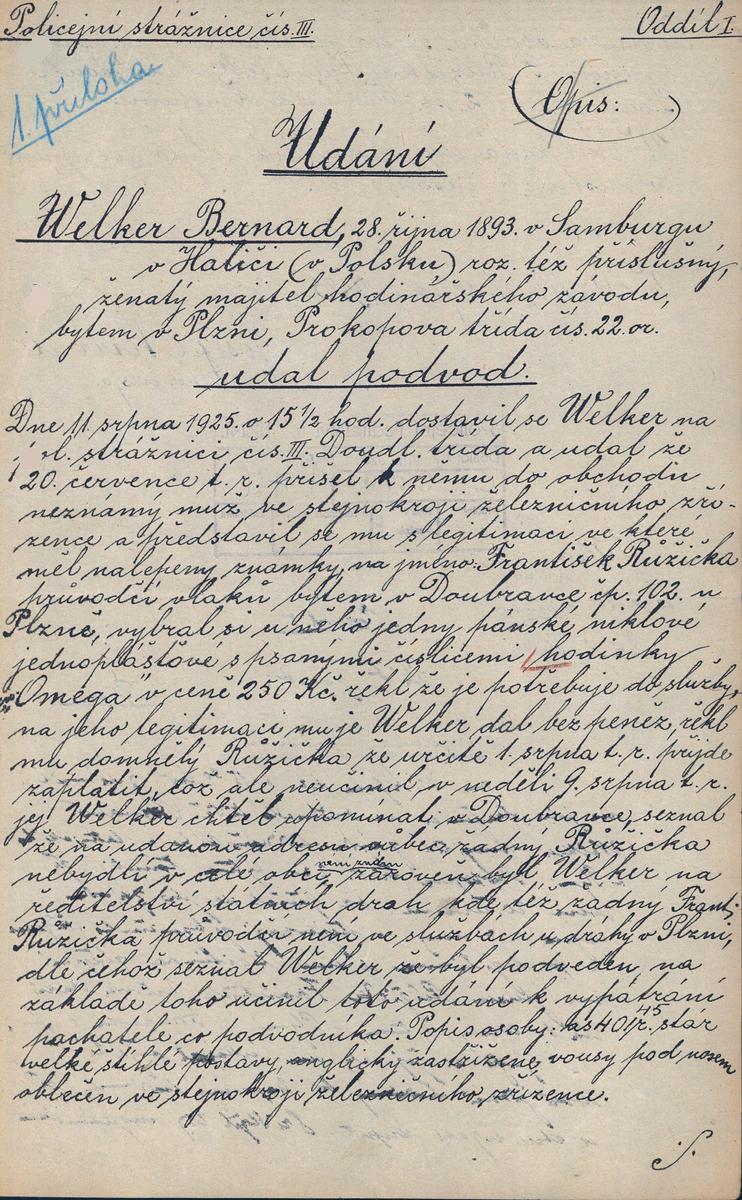 Policejní strážnice čís. III.
Oddíl I.
1. příloha
Opis:
Udání
Welker Bernard, 28. října 1893. v Samburgu
v Haliči (v Polsku) roz. též příslušný,
ženatý majitel hodinářského závodu,
bytem v Plzni, Prokopova třída čís. 22. or.
udal podvod.
Dne 11. srpna 1925. o 15 1/2 hod. dostavil se Welker na
pol. strážnici čís. III. Doudl. třída a udal že
20. července t. r. přišel k němu do obchodu
neznámý muž ve stejnokroji železničního zří-
zence a představil se mu s legitimací ve které
měl nalepeny známky, na jméno: František Růžička
průvodčí vlaků bytem v Doubravce čp. 102. u
Plzně, vybral si u něho jedny pánské, niklové,
jednoplášťové s psanými číslicemi, hodinky
"Omega" v ceně 250 Kč. řekl že je potřebuje do služby,
na jeho legitimaci mu je Welker dal bez peněz, řekl
mu domnělý Růžička že určitě 1. srpna t. r. přijde
zaplatit, což ale neučinil, v neděli 9. srpna t. r.
jej Welker chtěl upomínat v Doubravce, seznal
že na udanou adresu vůbec žádný Růžička
nebydlí v celé obci, není znám zároveň byl Welker na
ředitelství státních drah kde též žádný Franti.
Růžička průvodčí není ve službách u dráhy v Plzni,
dle čehož seznal Welker že byl podveden, na
základě toho učinil toto udání k vypátrání
pachatele co podvodníka. Popis osoby: as 40/45 r. stár
velké štíhlé postavy, anglicky zastřižené, vousy pod nosem
oblečen ve stejnokroji železničního, zřízence.